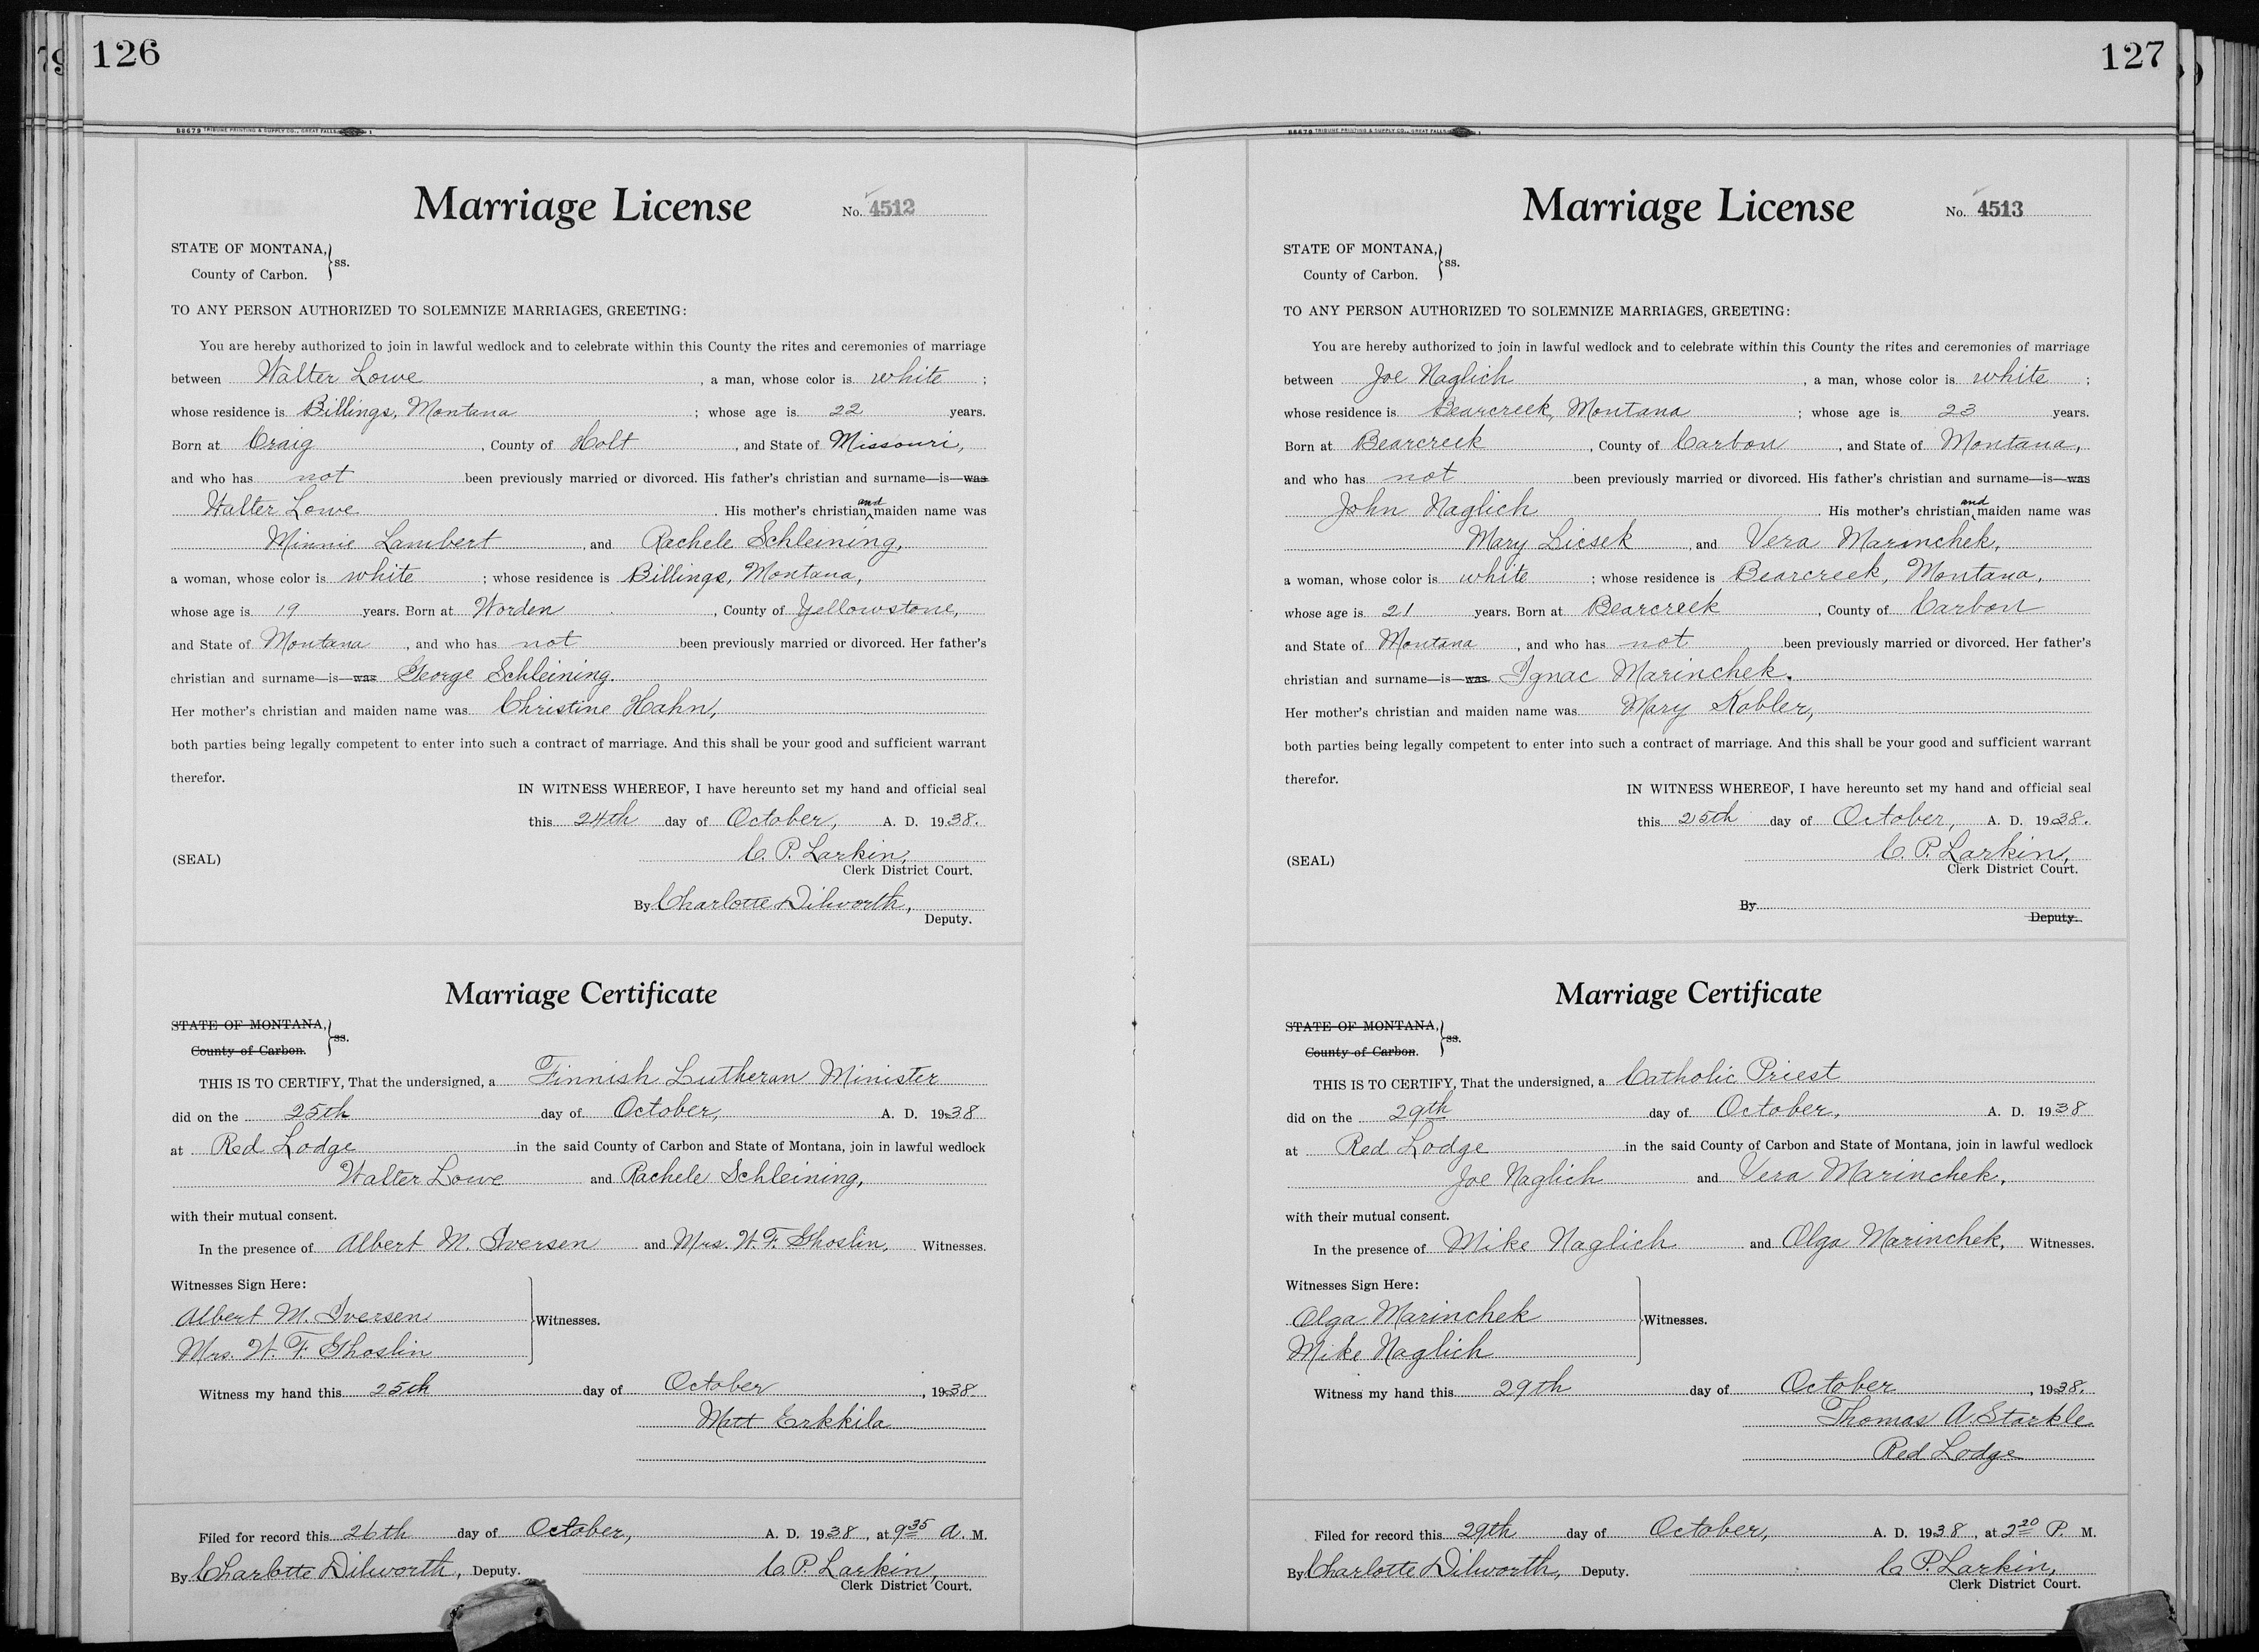 126
88679 TRIBUNE PRINTING & SUPPLY CO., GREAT FALLS
Marriage License
No. 4512
STATE OF MONTANA,
County of Carbon. } ss.
TO ANY PERSON AUTHORIZED TO SOLEMNIZE MARRIAGES, GREETING:
You are hereby authorized to join in lawful wedlock and to celebrate within this County the rites and ceremonies of marriage
between Walter Lowe, a man, whose color is white;
whose residence is Billings, Montana; whose age is 22 years.
Born at Craig, County of Holt, and State of Missouri,
and who has not been previously married or divorced. His father's christian and surname—is—was
Walter Lowe. His mother's christian and maiden name was
Minnie Lambert, and Rachele Schleining,
a woman, whose color is white; whose residence is Billings, Montana,
whose age is 19 years. Born at Worden, County of Yellowstone,
and State of Montana, and who has not been previously married or divorced. Her father's
christian and surname—is—was George Schleining.
Her mother's christian and maiden name was Christine Hahn,
both parties being legally competent to enter into such a contract of marriage. And this shall be your good and sufficient warrant
therefor.
IN WITNESS WHEREOF, I have hereunto set my hand and official seal
this 24th day of October, A. D. 1938.
(SEAL) C. P. Larkin,
Clerk District Court.
By Charlotte Dilworth,
Deputy.
Marriage Certificate
STATE OF MONTANA,
County of Carbon. } ss.
THIS IS TO CERTIFY, That the undersigned, a Finnish Lutheran Minister
did on the 25th day of October, A. D. 1938
at Red Lodge in the said County of Carbon and State of Montana, join in lawful wedlock
Walter Lowe and Rachele Schleining,
with their mutual consent.
In the presence of Albert M. Iversen and Mrs. W. F. Ghoslin, Witnesses.
Witnesses Sign Here:
Albert M. Iversen
Witnesses.
Mrs. W. F. Ghoslin
Witness my hand this 25th day of October, 1938
Matt Erkkila
Filed for record this 26th day of October, A. D. 1938, at 9 35 A. M.
By Charlotte Dilworth, Deputy. C. P. Larkin,
Clerk District Court.
127
88679 TRIBUNE PRINTING & SUPPLY CO., GREAT FALLS
Marriage License
No. 4513
STATE OF MONTANA,
County of Carbon. } ss.
TO ANY PERSON AUTHORIZED TO SOLEMNIZE MARRIAGES, GREETING:
You are hereby authorized to join in lawful wedlock and to celebrate within this County the rites and ceremonies of marriage
between Joe Naglich, a man, whose color is white;
whose residence is Bearcreek, Montana; whose age is 23 years.
Born at Bearcreek, County of Carbon, and State of Montana,
and who has not been previously married or divorced. His father's christian and surname—is—was
John Naglich. His mother's christian and maiden name was
Mary Licsek, and Vera Marinchek,
a woman, whose color is white; whose residence is Bearcreek, Montana,
whose age is 21 years. Born at Bearcreek, County of Carbon
and State of Montana, and who has not been previously married or divorced. Her father's
christian and surname—is—was Ignac Marinchek.
Her mother's christian and maiden name was Mary Kobler,
both parties being legally competent to enter into such a contract of marriage. And this shall be your good and sufficient warrant
therefor.
IN WITNESS WHEREOF, I have hereunto set my hand and official seal
this 25th day of October, A. D. 1938.
(SEAL) C. P. Larkin,
Clerk District Court.
By
Deputy.
Marriage Certificate
STATE OF MONTANA,
County of Carbon. } ss.
THIS IS TO CERTIFY, That the undersigned, a Catholic Priest
did on the 29th day of October, A. D. 1938
at Red Lodge in the said County of Carbon and State of Montana, join in lawful wedlock
Joe Naglich and Vera Marinchek,
with their mutual consent.
In the presence of Mike Naglich and Olga Marinchek, Witnesses.
Witnesses Sign Here:
Olga Marinchek
Witnesses.
Mike Naglich
Witness my hand this 29th day of October, 1938.
Thomas A. Starkle
Red Lodge
Filed for record this 29th day of October, A. D. 1938, at 2 20 P. M.
By Charlotte Dilworth, Deputy. C. P. Larkin,
Clerk District Court.